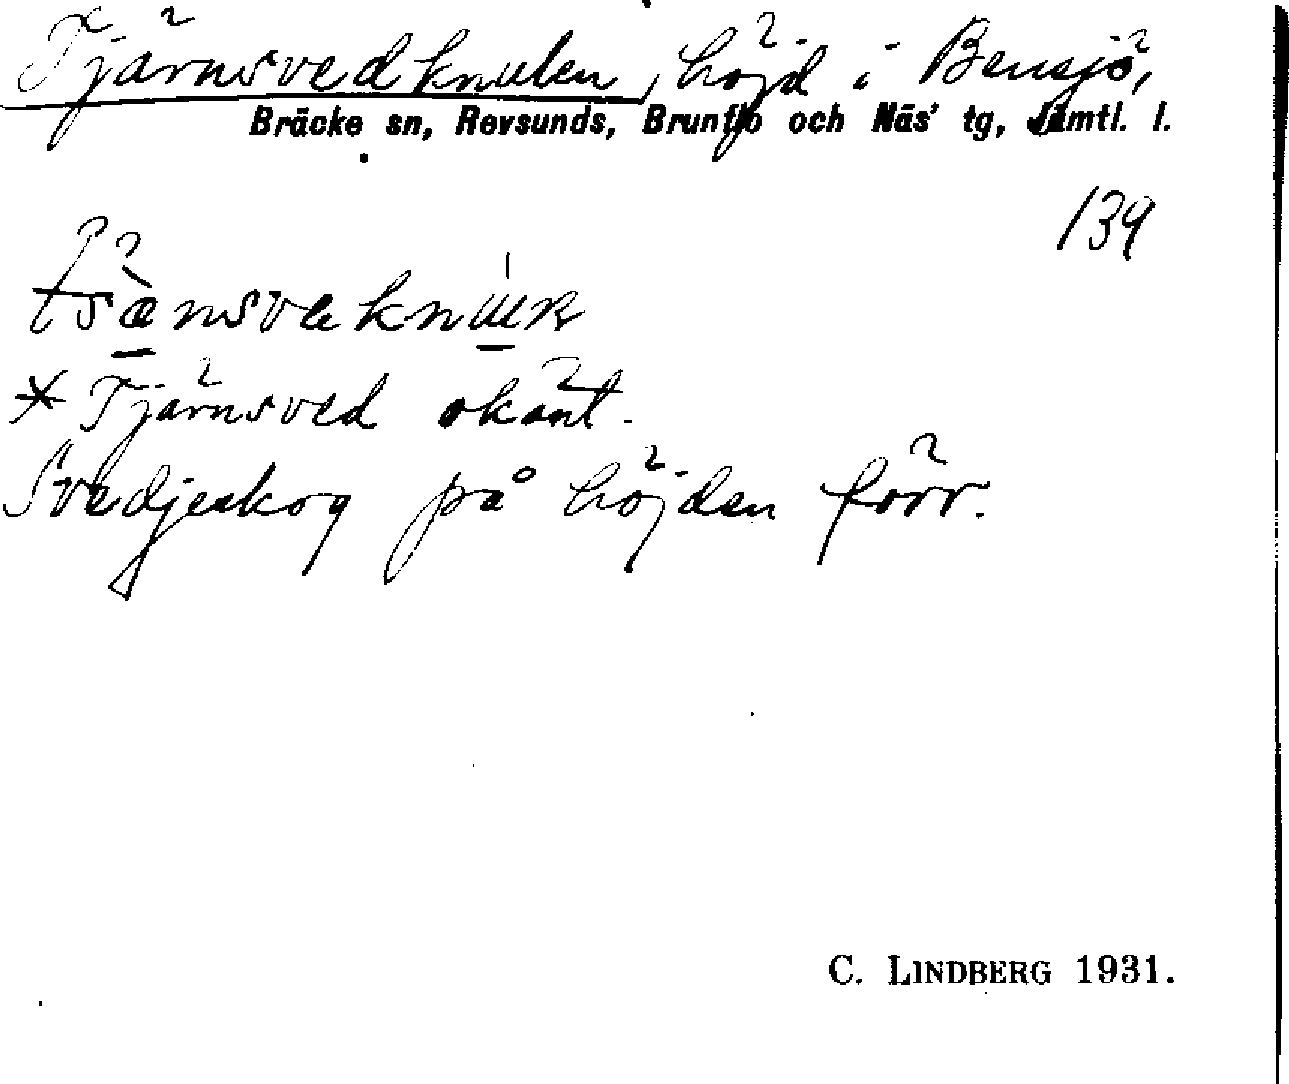 Tjärnsvedknulen, höjd i Bensjö,
Bräcke sn, Revsunds, Brunflo och Näs' tg, Jämtl. l.
139
*Tjärnsved okänt.
Svedjeskog på höjden förr.
C. LINDBERG 1931.